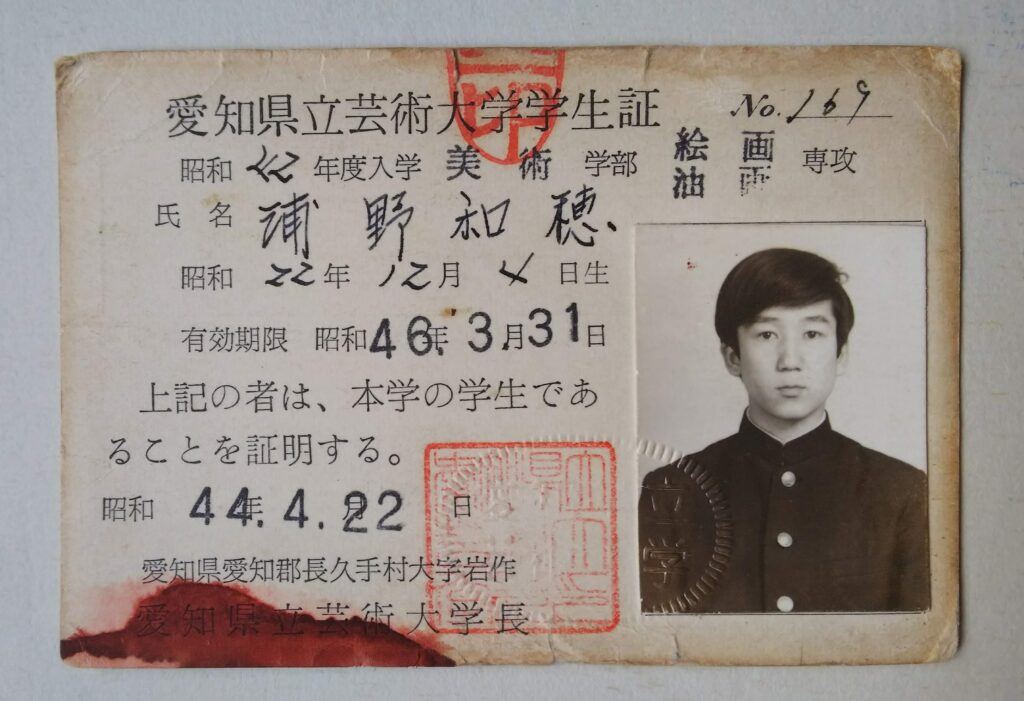 愛知県立芸術大学学生証 No. 169
昭和 42 年度入学 美術 学部 絵画 専攻
油画
氏名 浦野和穂
昭和 22年 12月 4日生
有効期限 昭和46年3月31日
上記の者は、本学の学生であ
ることを証明する。
昭和 44年4月22日
愛知県愛知郡長久手村大字岩作
愛知県立芸術大学長